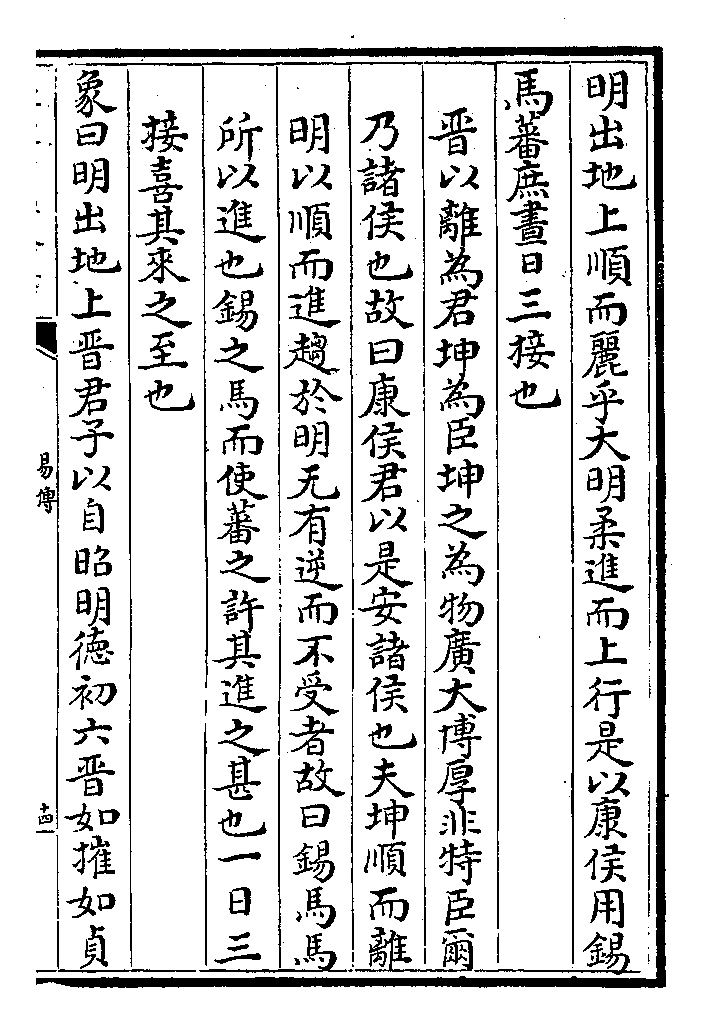 明出地上順而麗乎大明柔進而上行是以康侯用錫
馬蕃庶晝日三接也
晋以離為君坤為臣坤之為物廣大博厚非特臣爾
乃諸侯也故曰康侯君以是安諸侯也夫坤順而離
明以順而進趨於明无有逆而不受者故曰錫馬馬
所以進也錫之馬而使蕃之許其進之甚也一日三
接喜其來之至也
象曰明出地上晋君子以自昭明德初六晋如摧如貞
易傳
十四